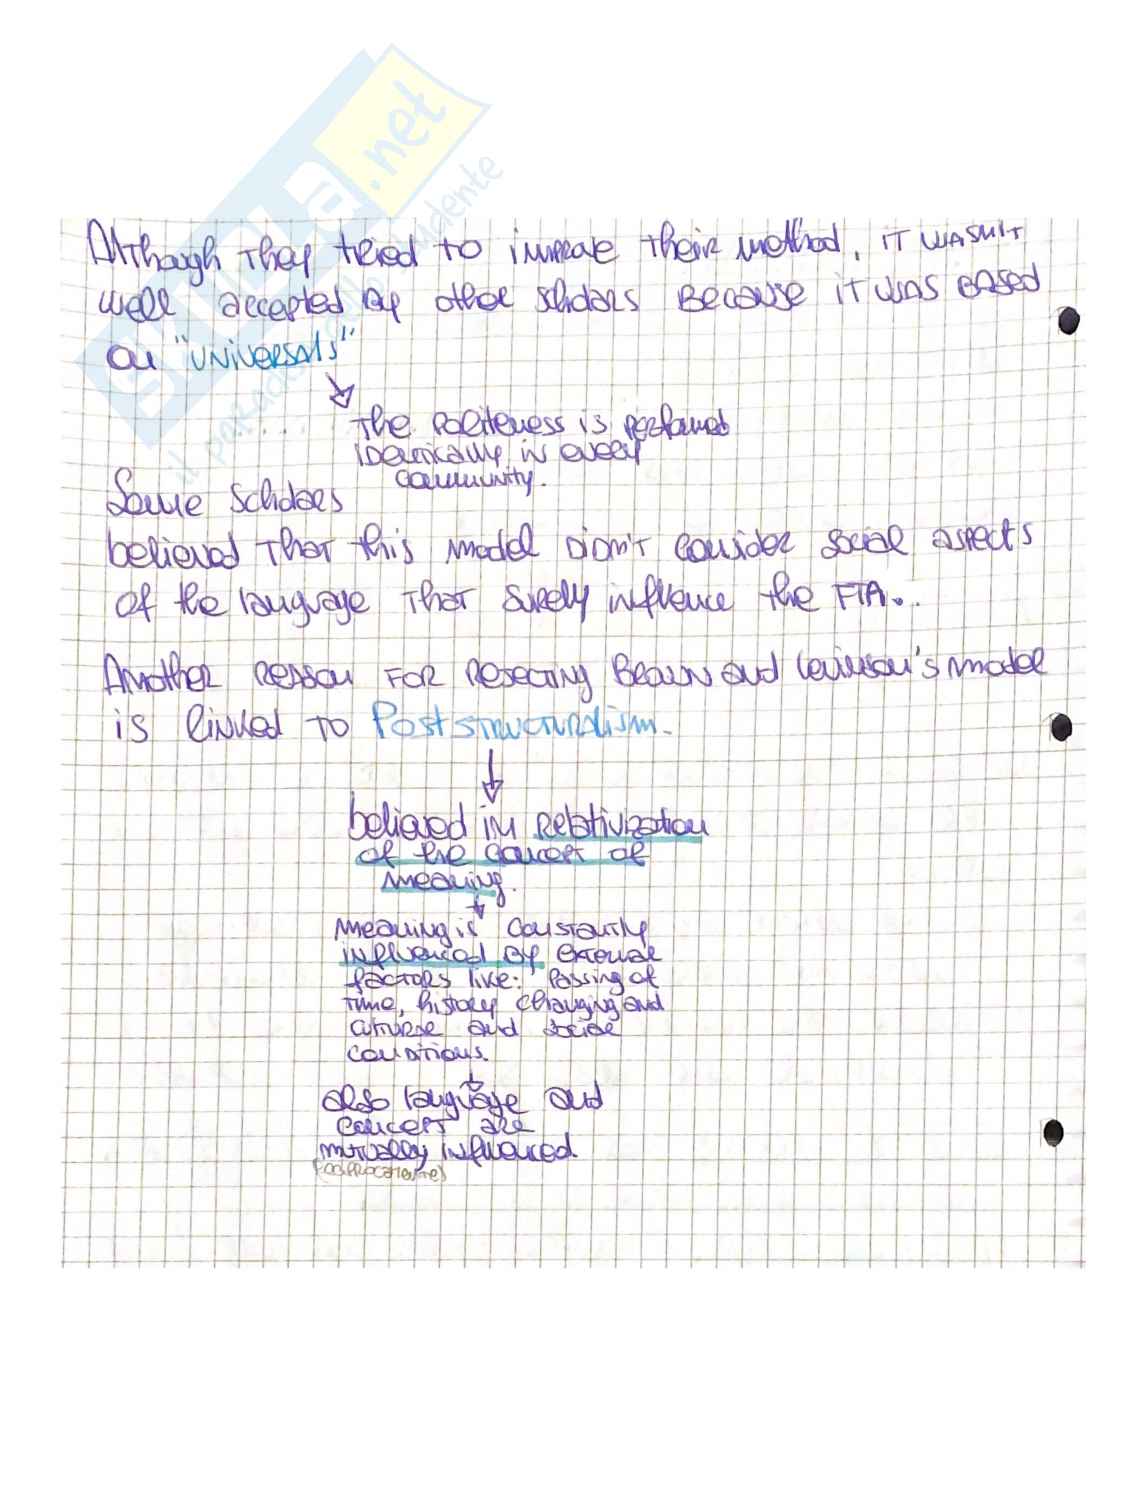 SKUOLA.net
il paradiso dello studente
Although they tried to improve their method, it wasn't
well accepted by other scholars because it was based
on "universals"
the politeness is performed
identically in every
community.
Some scholars
believed that this model didn't consider social aspects
of the language that surely influence the FTA..
Another reason for rejecting Brown and Levinson's model
is linked to Poststructuralism.
believed in relativization
of the concept of
meaning.
meaning is constantly
influenced by external
factors like: passing of
time, history changing and
culture and social
conditions.
also language and
concept are
mutually influenced.